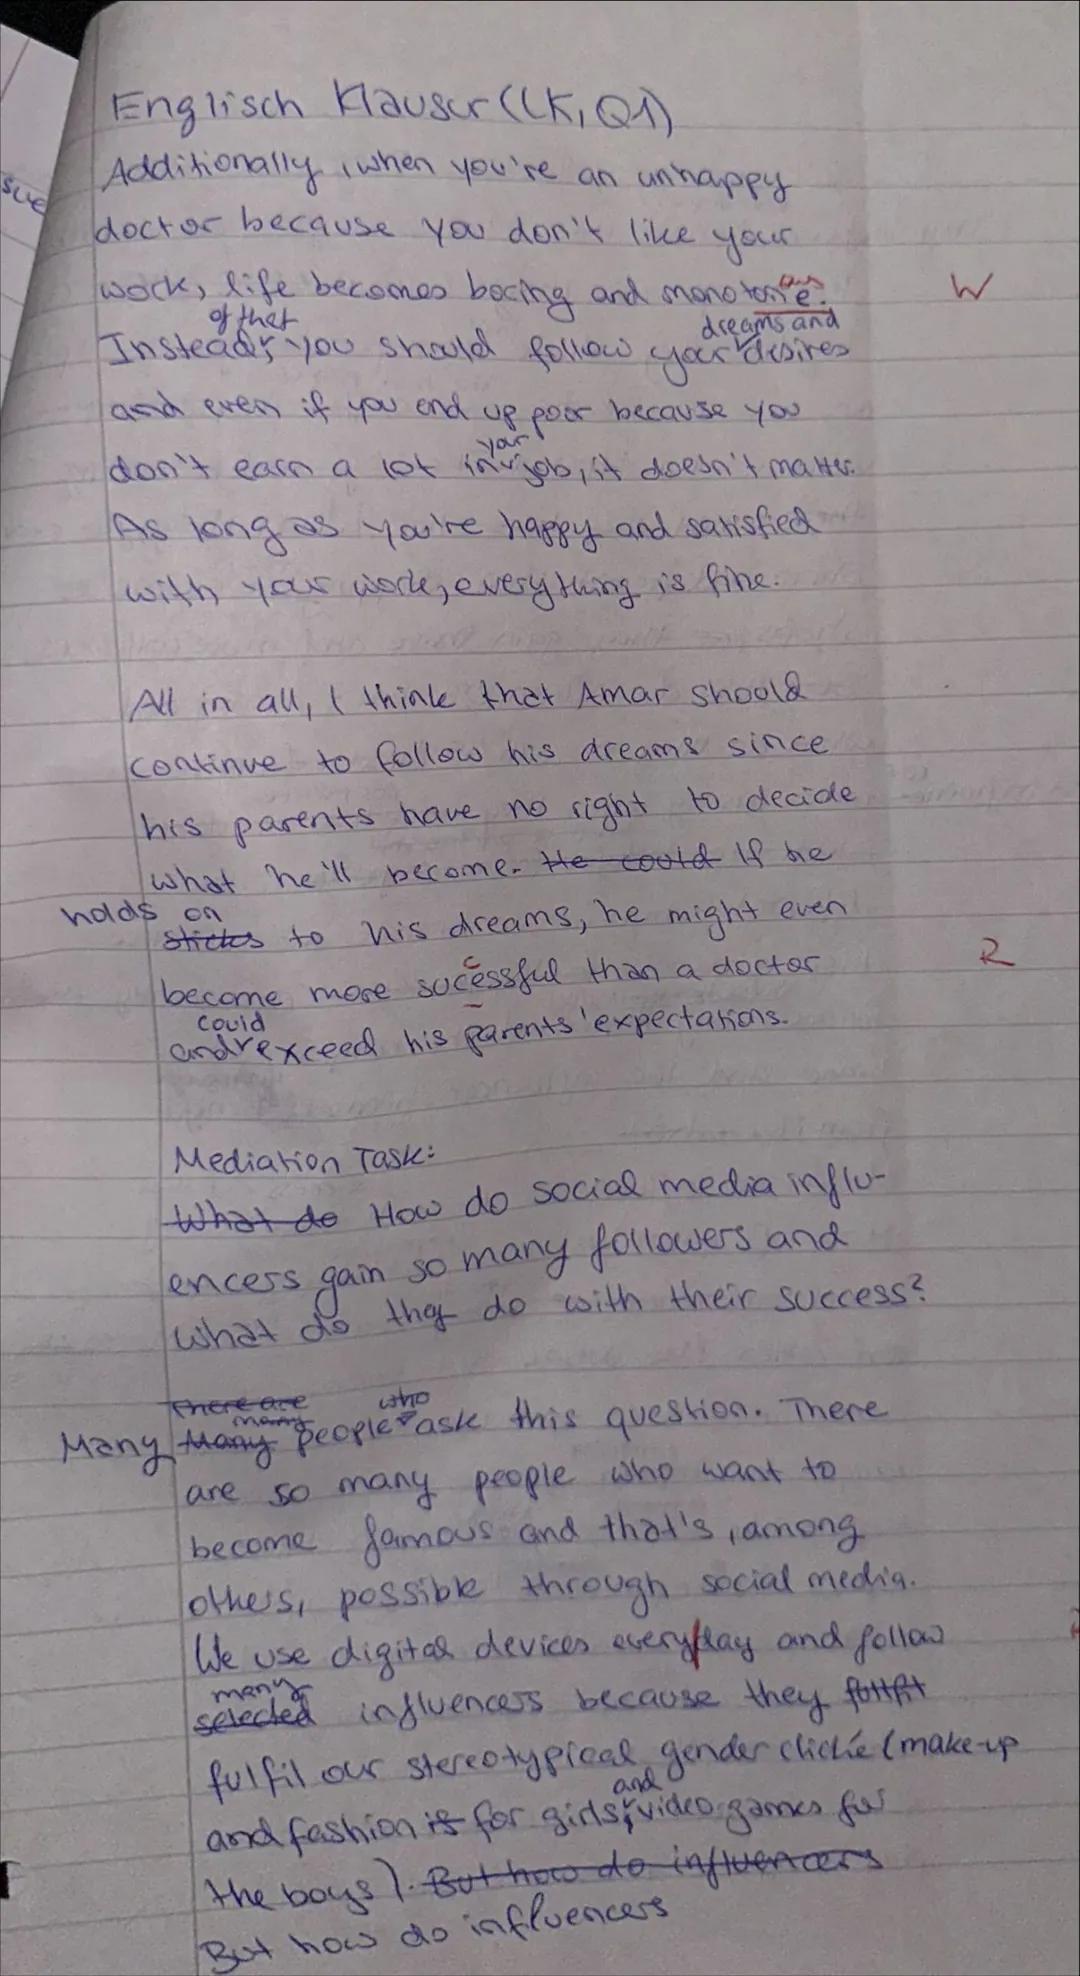 Englisch Klausur (LK, Q1)
Additionally, when you're an unhappy
doctor because you don't like your
work, life becomes boring and monotone. ous W
Instead of that, you should follow your dreams and desires
and even if you end up poor because you
don't earn a lot in your job, it doesn't matter.
As long as you're happy and satisfied
with your work, everything is fine.
All in all, I think that Amar should
continue to follow his dreams since
his parents have no right to decide
what he'll become. He could If he
holds on sticks to his dreams, he might even
become more sucessful than a doctor c R
and could exceed his parents' expectations.
Mediation Task:
What do How do social media influ-
encers gain so many followers and
what do they do with their success?
There are many who
Many Many people ask this question. There
are so many people who want to
become famous and that's, among
others, possible through social media.
We use digital devices everyday and follow
many selected influencers because they fullfit
fulfil our stereotypical gender clichée (make-up
and fashion is for girls, and video games for
the boys). But how do influencers
But how do influencers